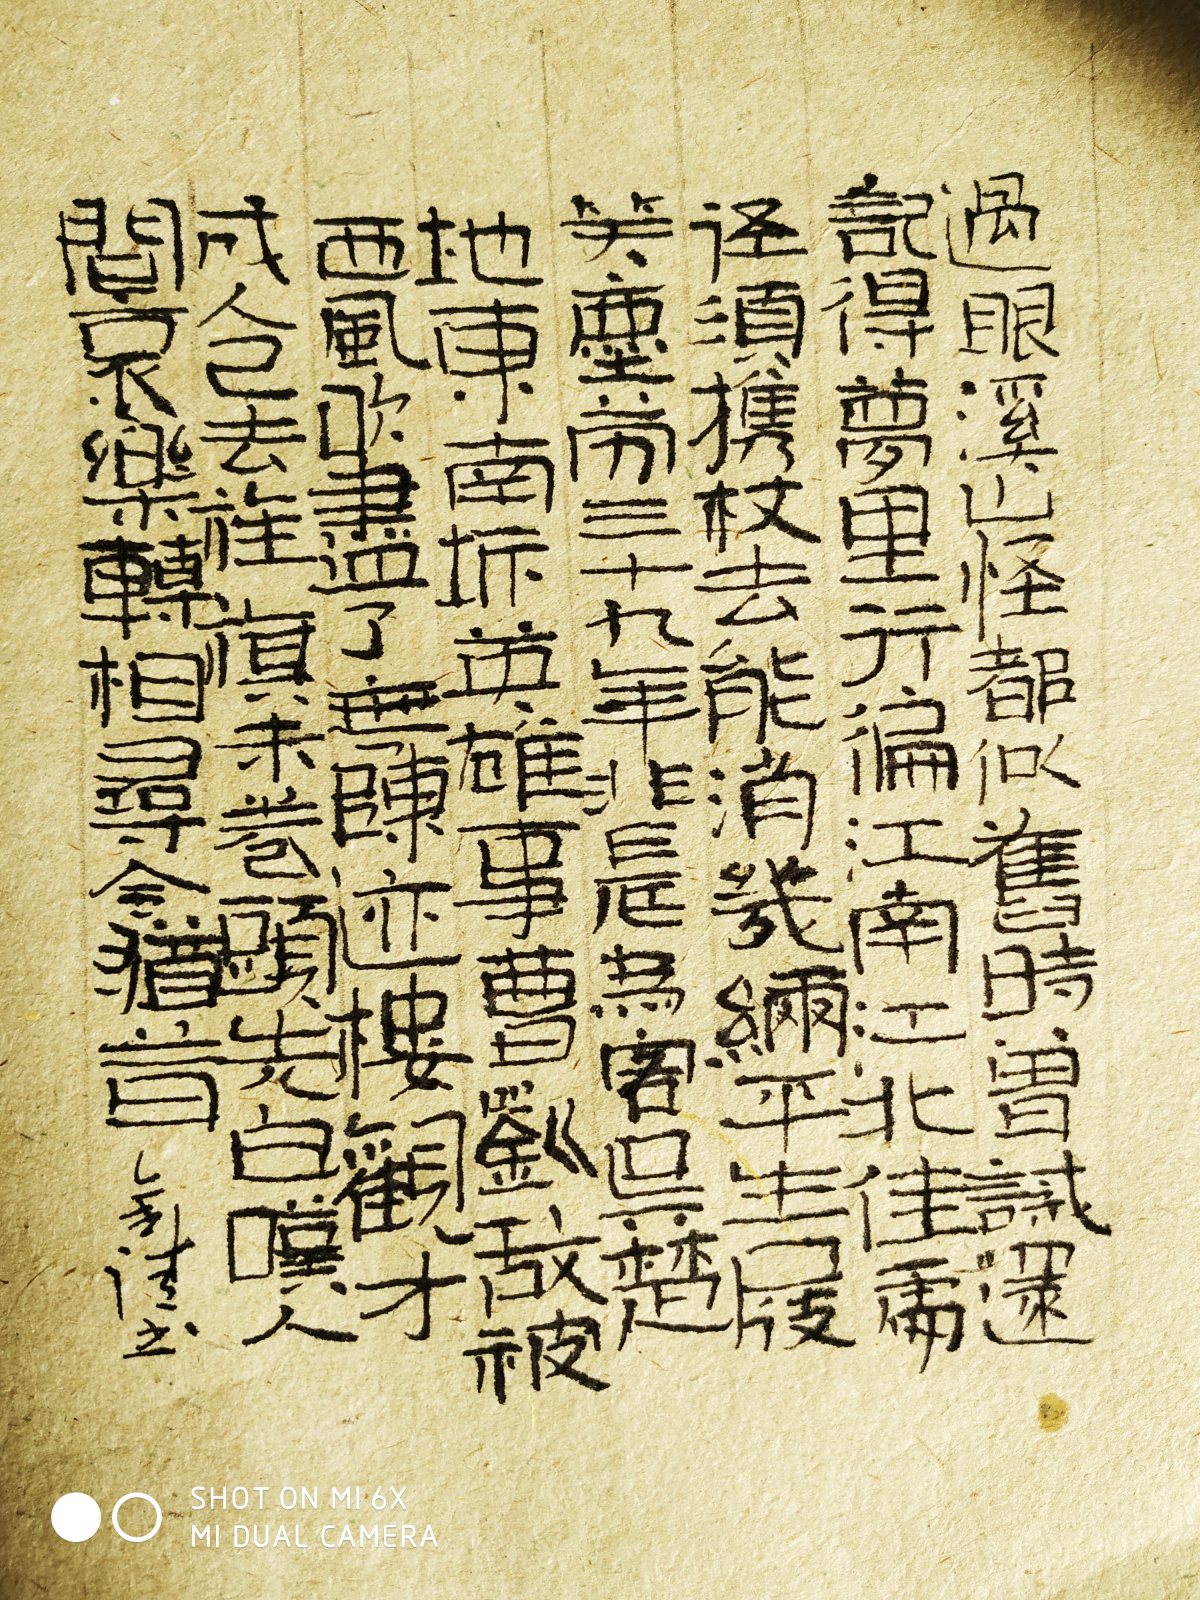 過眼溪山怪都似舊時曾識還
記得夢里行徧江南江北佳處
径須攜杖去能消幾緉平生屐
笑塵勞三十九年非長為客吳楚
地東南坼英雄事曹劉敵被
西風吹盡了無陳迹樓觀才
成人已去旌旗未卷頭先白嘆人
間哀樂轉相尋今猶昔
SHOT ON MI 6X
MI DUAL CAMERA